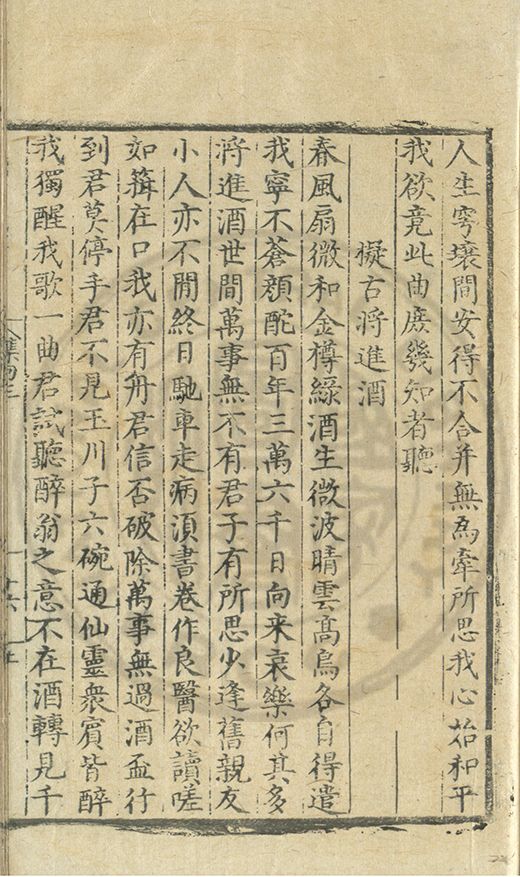 人生穹壤間安得不合并無為牽所思我心始和平
我欲竟此曲庶幾知者聽
擬古將進酒
春風扇微和金樽綠酒生微波晴雲高鳥各自得遣
我寧不蒼顏酡百年三萬六千日向来哀樂何其多
將進酒世間萬事無不有君子有所思少逢舊親友
小人亦不閒終日馳車走病須書卷作良醫欲讀嗟
如箝在口我亦有舟君信否破除萬事無過酒盃行
到君莫停手君不見玉川子六碗通仙靈衆賓皆醉
我獨醒我歌一曲君試聽醉翁之意不在酒轉見千